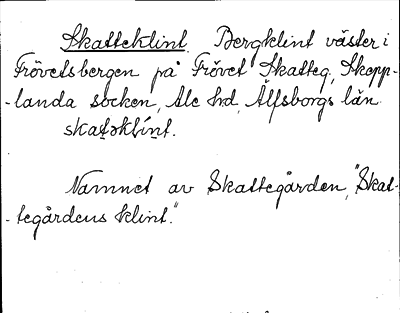 Skatteklint. Bergklint väster i
Frövetsbergen på Frövet Skatteg, Skepp-
-landa socken, Ale hd, Älfsborgs län
skat̯əklínt.
Namnet av Skattegården, "Skat-
-tegårdens klint."